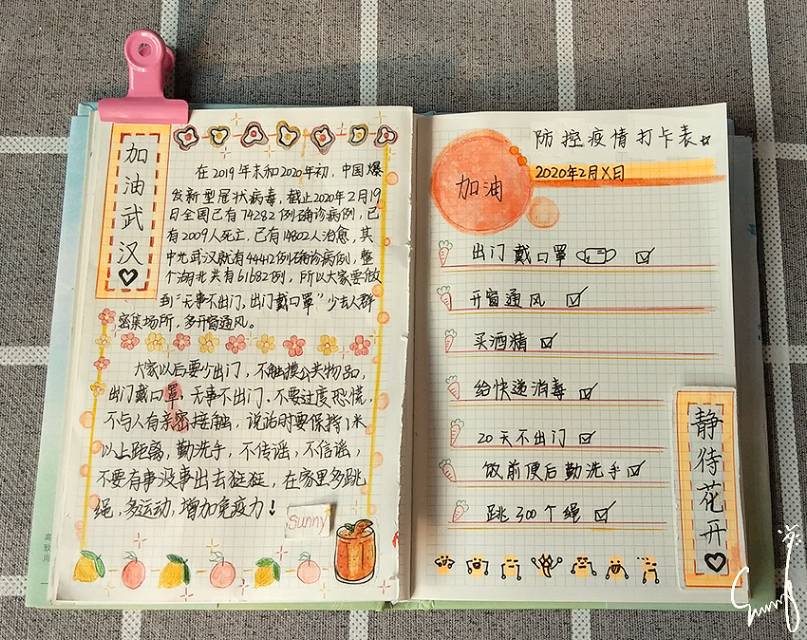 加油武汉
在2019年末和2020年初，中国爆
发新型冠状病毒，截止2020年2月19
日全国已有74282例确诊病例，已
有2009人死亡，已有14802人治愈，其
中光武汉就有44412例确诊病例，整
个湖北共有61682例，所以大家要做
到“无事不出门，出门戴口罩”少去人群
密集场所，多开窗通风。
大家以后要少出门，不触摸公共物品，
出门戴口罩，无事不出门，不要过度恐慌，
不与人有亲密接触，说话时要保持1米
以上距离，勤洗手，不传谣，不信谣，
不要有事没事出去逛逛，在家里多跳
绳，多运动，增加免疫力！
Sunny
防控疫情打卡表
加油
2020年2月X日
出门戴口罩
开窗通风
买酒精
给快递消毒
20天不出门
饭前便后勤洗手
跳300个绳
静待花开